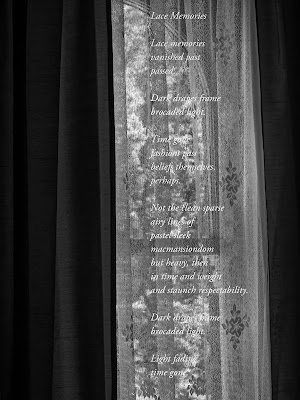 Lace Memories
Lace memories
vanished past
passed.
Dark drapes frame
brocaded light.
Time goes
fashions pass
beliefs themselves
perhaps.
Not the clean sparse
airy lines of
pastel sleek
macmansiondom
but heavy, then
in time and weight
and staunch respectability.
Dark drapes frame
brocaded light.
Light fading
time gone